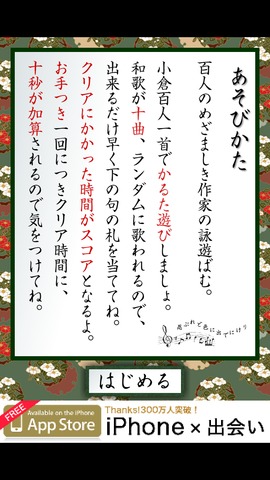 あそびかた
百人のめざましき作家の詠遊ばむ。
小倉百人一首でかるた遊びしましょ。
和歌が十曲、ランダムに歌われるので、
出来るだけ早く下の句の札を当ててね。
クリアにかかった時間がスコアとなるよ。
お手つき一回につきクリア時間に、
十秒が加算されるので気をつけてね。
忍ぶれど色に出でにけり
はじめる
FREE
Available on the iPhone
App Store
Thanks!300万人突破！
iPhone×出会い